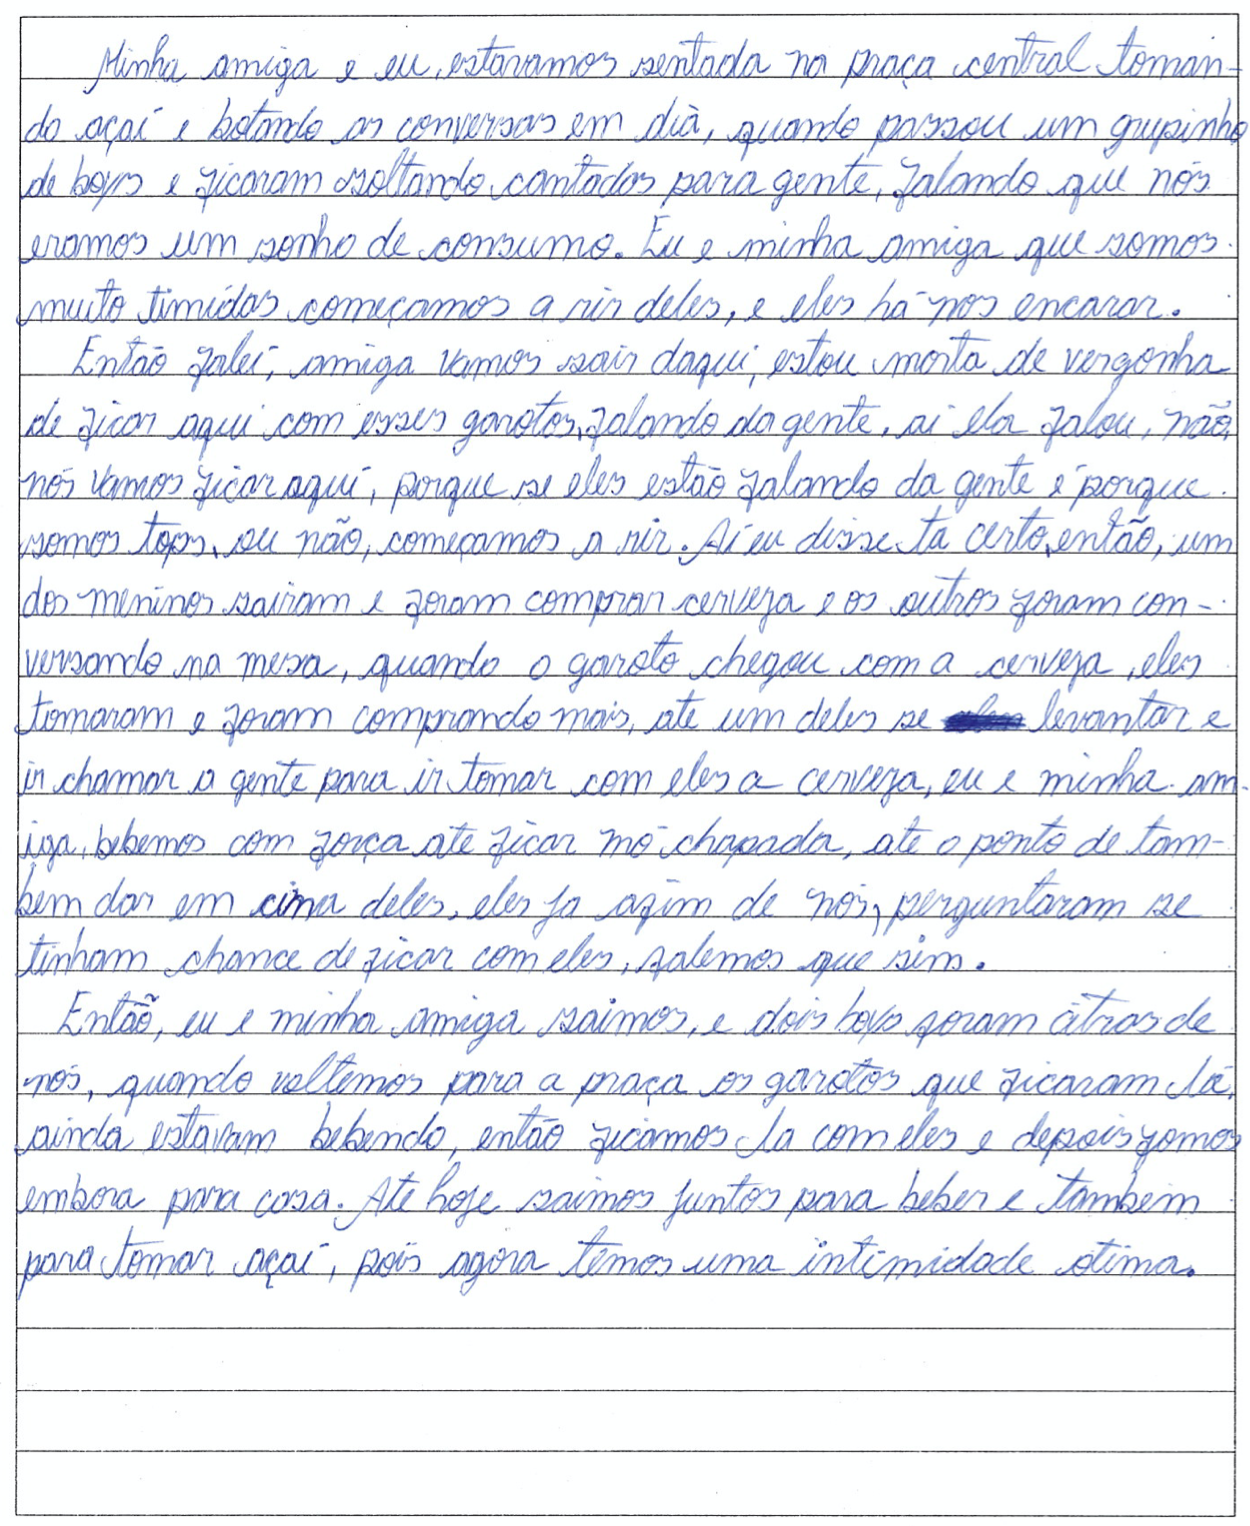 Minha amiga e eu, estavamos sentada na praça central toman-
do açaí e botando as conversas em dià, quando passou um grupinho
de boys e ficaram soltando cantadas para gente, falando que nós
eramos um sonho de consumo. Eu e minha amiga que somos
muito timídas começamos a rir deles, e eles há nos encarar.
Então falei, amiga vamos sair daqui, estou morta de vergonha
de ficar aqui com esses garotos, falando da gente, ai ela falou, não,
nós vamos ficar aquí, porque se eles estão falando da gente é porque
somos tops, ou não, começamos a rir. Aí eu disse ta certo, então, um
dos meninos sairam e foram comprar cerveja e os outros foram con-
versando na mesa, quando o garoto chegou com a cerveja, eles
tomaram e foram comprando mais, ate um deles se levantar e
ir chamar a gente para ir tomar com eles a cerveja, eu e minha am-
iga, bebemos com força ate ficar mó chapada, ate o ponto de tam-
bem dar em cima deles, eles ja afim de nós, perguntaram se
tinham chance de ficar com eles, falemos que sim.
Então, eu e minha amiga saimos, e dois boys foram átras de
nós, quando voltemos para a praça os garotos que ficaram lá,
ainda estavam bebendo, então ficamos la com eles e depois fomos
embora para casa. Ate hoje saimos juntos para beber e também
para tomar açaí, pois agora temos uma intimidade otima.